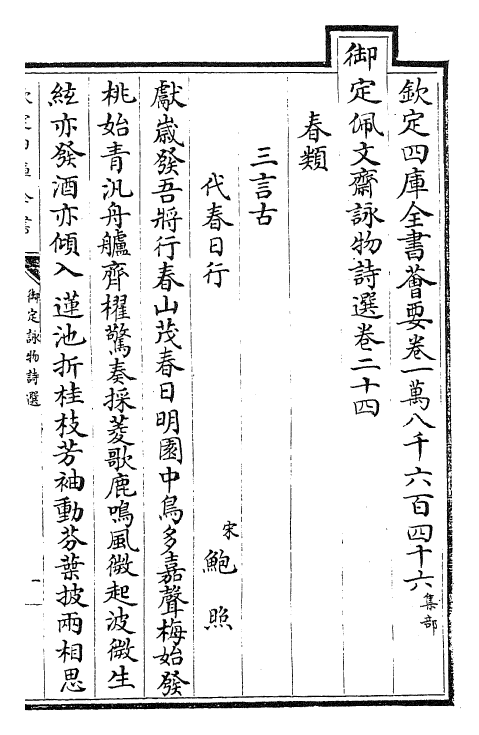 欽定四庫全書薈要卷一萬八千六百四十六集部
御定佩文齋詠物詩選卷二十四
春類
三言古
代春日行
宋鮑照
獻歲發吾將行春山茂春日明園中鳥多嘉聲梅始發
桃始青汎舟艫齊櫂驚奏採菱歌鹿鳴風微起波微生
絃亦發酒亦傾入蓮池折桂枝芳袖動芬葉披兩相思
欽定四庫全書
御定詠物詩選
一